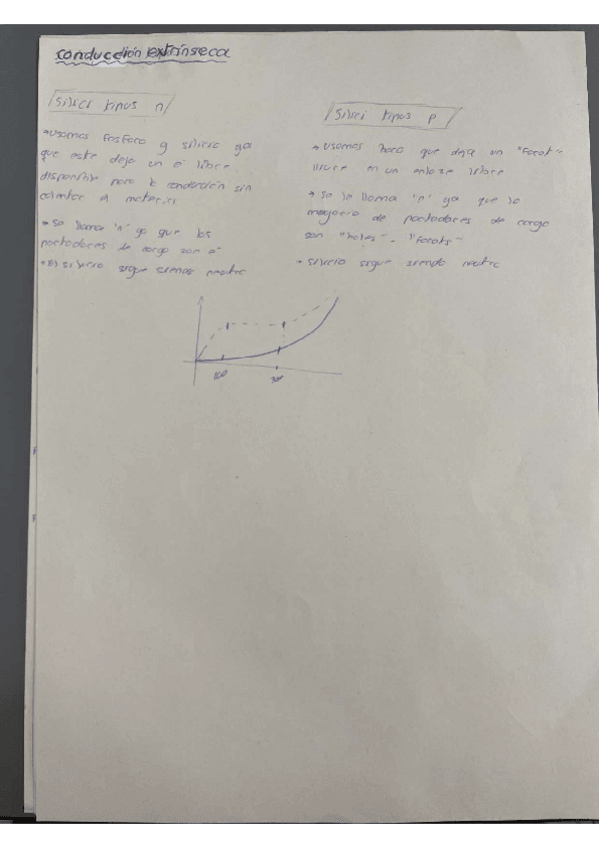 conducción extrínseca
Silici tipus n
•usamos fosforo y silicio ya
que este deja un e⁻ libre
disponible para la conducción sin
calentar el material
• se llama "n" ya que los
portadores de carga son e⁻
• El silicio sigue siendo neutro
Silici tipus p
• usamos boro que deja un "forat"
lliure en un enlaze libre
• se le llama "p" ya que la
mayoria de portadores de carga
son "holes" - "forats"
• silicio sigue siendo neutro
100
300